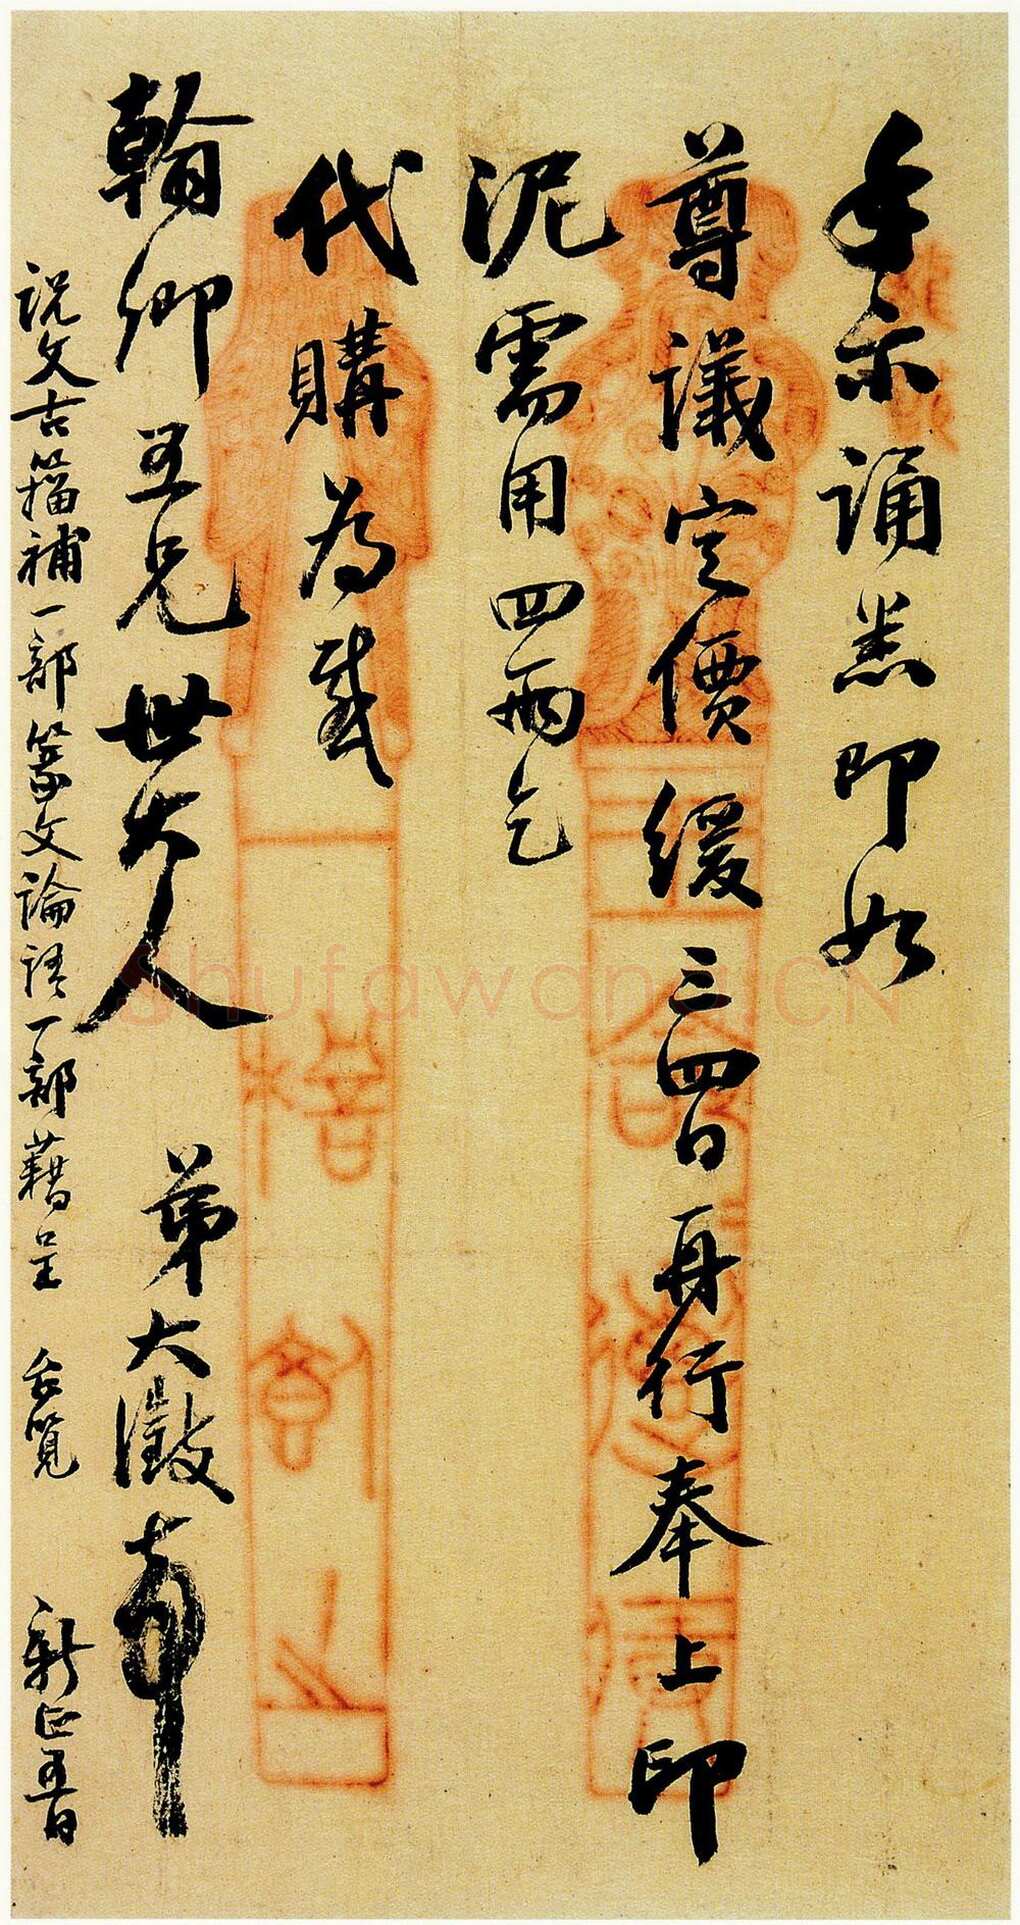 手示誦悉即如
尊議定價緩三四日再行奉上印
泥需用四兩乞
代購為感
翰卿五兄世大人 弟大澂頓首
說文古籀補一部篆文論語一部藉呈 台覽 新正五日
Shufawang.CN